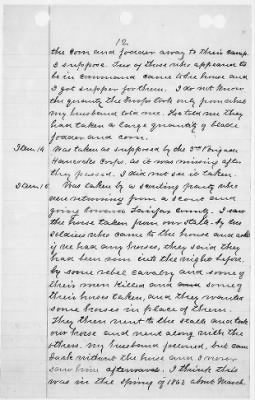 12
the corn and fodder away to their camp
I suppose. Two of those who appeared to
be in command came to the house and
I got supper for them. I do not know
the quantity the troops took only from what
my husband told me. He told me they
had taken a large quantity of blade
fodder and corn.
Item 14. Was taken as supposed by the 2nd Brigade
Hancocks Corps, as it was missing after
they passed. I did not see it taken.
Item 15. Was taken by a scouting party who
were returning from a scout and
going towards Fairfax County. I saw
the horse taken from our stable by
soldiers who came to the house and asked
if we had any horses, they said they
had been run into the night before
by some rebel cavalry and some of
their men killed and some of
their horses taken, and they wanted
some horses in place of them.
They then went to the stable and took
our horse and went along with the
others. my husband followed, but came
back without the horse and I never
saw him afterwards. I think this
was in the Spring of 1863 about March